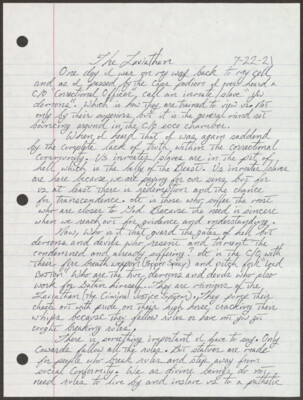 The Leviathan 7-22-21
One day I was on my way back to my cell
and as I passed by the cage podium I over heard a
C/O "Correctional Officer," call an inmate slave "you
demons". Which is how they are trained to view us, not
only by their superiors, but it is the general mind set
bouncing around in the C/O echo chamber.
When I heard that I was again saddened
by the complete lack of truth within the correctional
community. Us inmates/slaves are in the pit of
hell, which is the belly of the beast. Us inmates/slaves
are here because we are paying for our sins, but for
us at least there is redemption and the chance
for transcendence. It is those who suffer the most
who are closer to God. Because the need is sincere
when we reach out for guidance and understanding.
Now, who is it that guard the gates of hell, but
demons and devils who resent and torment the
condemned and already suffering? It is the C/O with
their fire breath weapon (Pepper Spray) and witch fork "God
Baton". Who are the true demons and devils who also
work for Satan himself. They are stingers of the
Leviathan (The Criminal Justice System). They plunge their
chests out with pride on their high horse, cracking their
whips because they follow rules or have not
caught breaking rules.
There is something important I have to say. Only
Cowards follow all the rules. But statues are made
for people who break rules and step away from
social conformity. We as divine beings do not
need rules to live by and enslave us to a pathetic